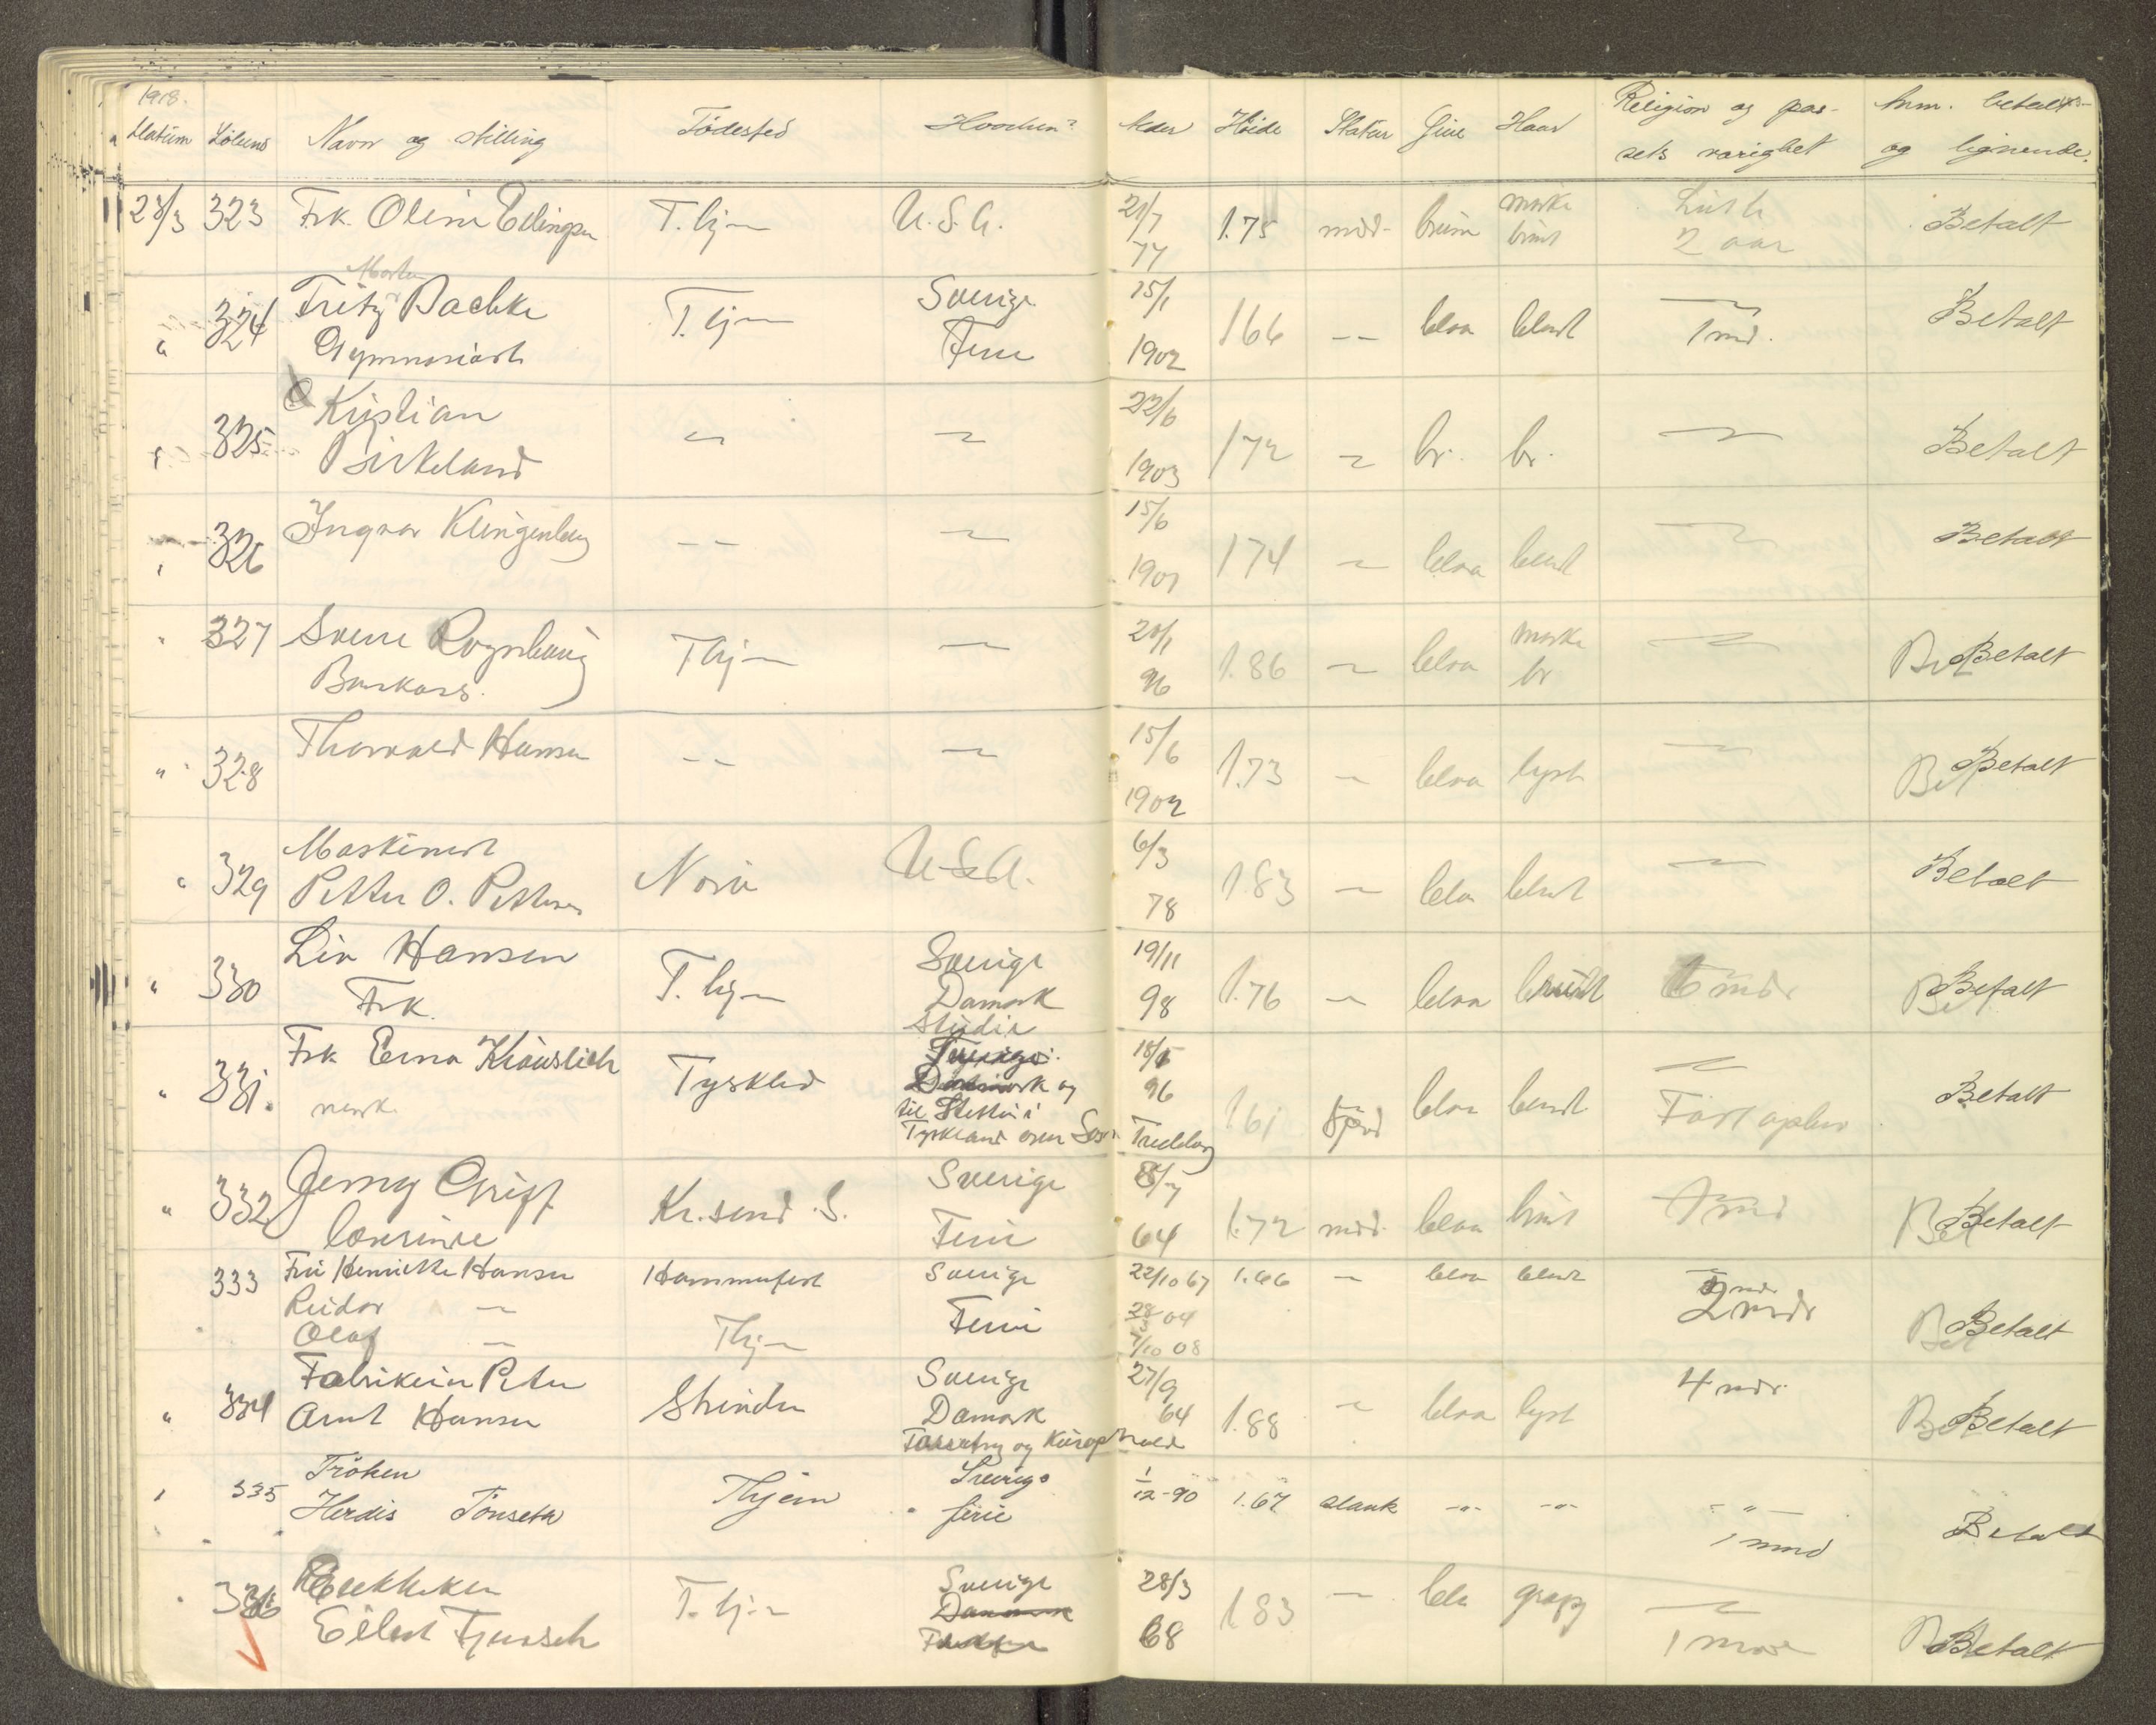 1918.
Datum Löbenr Navn og stilling Födested Hvorhen? Alder Höide Statur Öine Haar Religion og pas- Anm. betalt
sets varighet og lignende.
28/3 323 Frk. Oline Ellingsen T.hjem U.S.A. 21/7 77 1.75 mid- brune mørke brunt Luth 2 aar Betalt
Morten
" 324 Fritz Bachke T.hjem Sverige 15/1 1902 166 -- blaa blond 1 md. Betalt
Gymnasiast Ferie
" 325 Kristian 22/6 1903 172 br. br. Betalt
Birkeland
" 326 Ingvar Klingenberg -- 15/6 1901 174 blaa blond Betalt
" 327 Sverre Rognhaug Thjem 20/1 96 1.86 blaa mørke br Betalt
Bankass.
" 328 Thorvald Hansen -- 15/6 1902 1.73 blaa lyst Betalt
" 329 Maskinist U.S.A. 6/3 78 1.83 blaa blond Betalt
Petter O. Pettersen
" 330 Liv Hansen T.hjem Sverige 19/11 98 1.76 blaa brundt 6 mdr Betalt
Frk. Danmark
studie
" 331. Frk Erna Tyskland Sverige 18/5 96 161 blaa blond Betalt
norsk Danmark og
til Stettin i
Tyskland over Trelleborg
" 332 Jenny Kr.sand .S. Sverige 8/7 64 1.72 mid. blaa brunt 1 md Betalt
Ferie
333 Fru Henriette Hansen Hammerfest Sverige 22/10 67 1.66 - blaa blond 2 mdr Betalt
Reidar - Ferie 04
Olaf - Thjem 7/10 08
" 334 Fabrikeier Peter Strinden Sverige 27/9 64 1.88 blaa lyst 4 mdr. Betalt
Arnt Hansen Danmark
335 Fröken Thjem Sverige 1/12-90 1.67 slank -"- -"- -"- Betalt
Herdis Tönseth ferie 1 mnd
336 T.hjem Sverige 28/3 68 183 blaa Betalt
Eilert Danmark